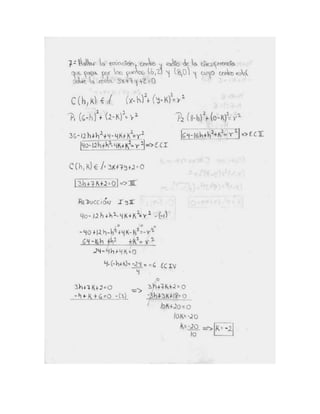 7-Hallar la ecuación, centro y radio de la circunferencia
que pasa por los puntos (6,2) y (8,0) y cuyo centro está
sobre la recta 3x+7y+2=0
C(h,K) ∈ l. (x-h)²+(y-K)²=r²
P₁ (6-h)²+(2-K)²=r² P₂ (8-h)²+(0-K)²=r²
36-12h+h²+4-4K+K²=r² 64-16h+h²+K²=r² => EC II
40-12h+h²-4K+K²=r² => EC I
C(h,K) ∈ l=3x+7y+2=0
3h+7K+2=0 => III
REDUCCIÓN I y II
40-12h+h²-4K+K²=r² -(-1)
-40+12h-h²+4K-K²=-r²
64-16h+h² +K²=r²
24-4h+4K=0
4(-h+K)=-24=-6 EC IV
4
3h+7K+2=0 => 3h+7K+2=0
-h+K+6=0 -(3) -3h+3K+18=0
10K+20=0
10K=-20
K=-20 => K=-2
10